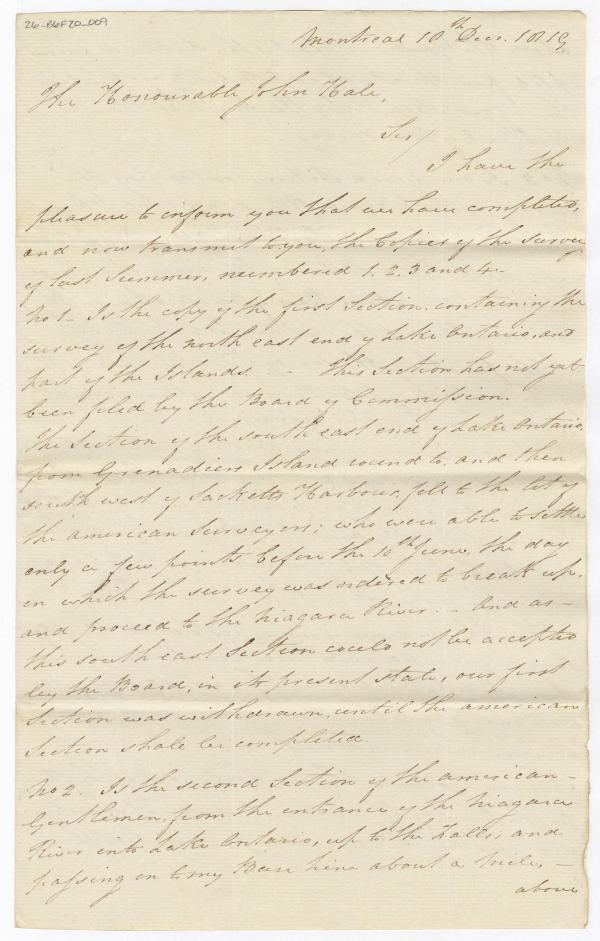 26-B6F20_009
Montreal 10th Decr. 1819
The Honourable John Hale,
Sir/
I have the
pleasure to inform you that we have completed,
and now transmit to you, the Copies of the survey
of last Summer, numbered 1. 2. 3 and 4.
No 1 - Is the copy of the first Section, containing the
survey of the north east end of Lake Ontario, and
part of the Islands. - This Section has not yet
been filed by the Board of Commission.
The Section of the south east end of Lake Ontario,
from Grenadiers Island round to, and then
south west of Sacketts Harbour, fell to the lot of
the american Surveyors; who were able to settle
only a few points before the 10th June, the day
on which the survey was ordered to break up,
and proceed to the Niagara River. - And as -
this south east Section could not be accepted
by the Board, in its present state, our first
Section was withdrawn, until the american
Section shall be completed.
No 2. Is the second Section of the american -
Gentlemen, from the entrance of the Niagara
River into Lake Ontario, up to the Falls, and
passing on to my Base line about a mile, -
above